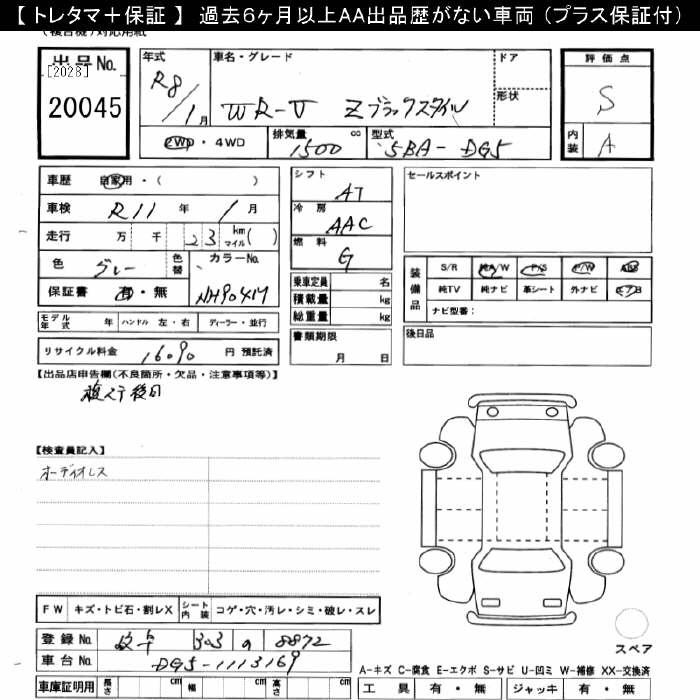 【 トレタマ＋保証 】 過去6ヶ月以上AA出品歴がない車両 （プラス保証付）
(複合機)対応用紙
出品No.
[2028]
20045
年式
R8/1月
車名・グレード
WR-V Zブラックスタイル
ドア
形状
評価点
S
内装
A
2WD・4WD
排気量
1500 cc
型式
5BA-DG5
車歴 自家用・( )
車検 R11 年 1 月
走行 万 千 23 km マイル( )
色 グレー 色替
カラーNo.
NH904M
保証書 有・無
モデル年式 年 ハンドル 左・右 ディーラー・並行
リサイクル料金 16090 円 預託済
シフト
AT
冷房
AAC
燃料
G
乗車定員 名
積載量 kg
総重量 kg
書類期限
月 日
セールスポイント
装備品
S/R 純A/W P/S P/W ABS
純TV 純ナビ 革シート 外ナビ エアB
ナビ型番：
後日品
【出品店申告欄(不良箇所・欠品・注意事項等)】
複ステ後日
【検査員記入】
オーディオレス
FW キズ・トビ石・割レX
シート内装 コゲ・穴・汚レ・シミ・破レ・スレ
登録No. 303 の 8872
車台No. DG5-1113169
車庫証明用 長さ cm 幅 cm 高さ cm
スペア
A-キズ C-腐食 E-エクボ S-サビ U-凹ミ W-補修 XX-交換済
工具 有・無 ジャッキ 有・無